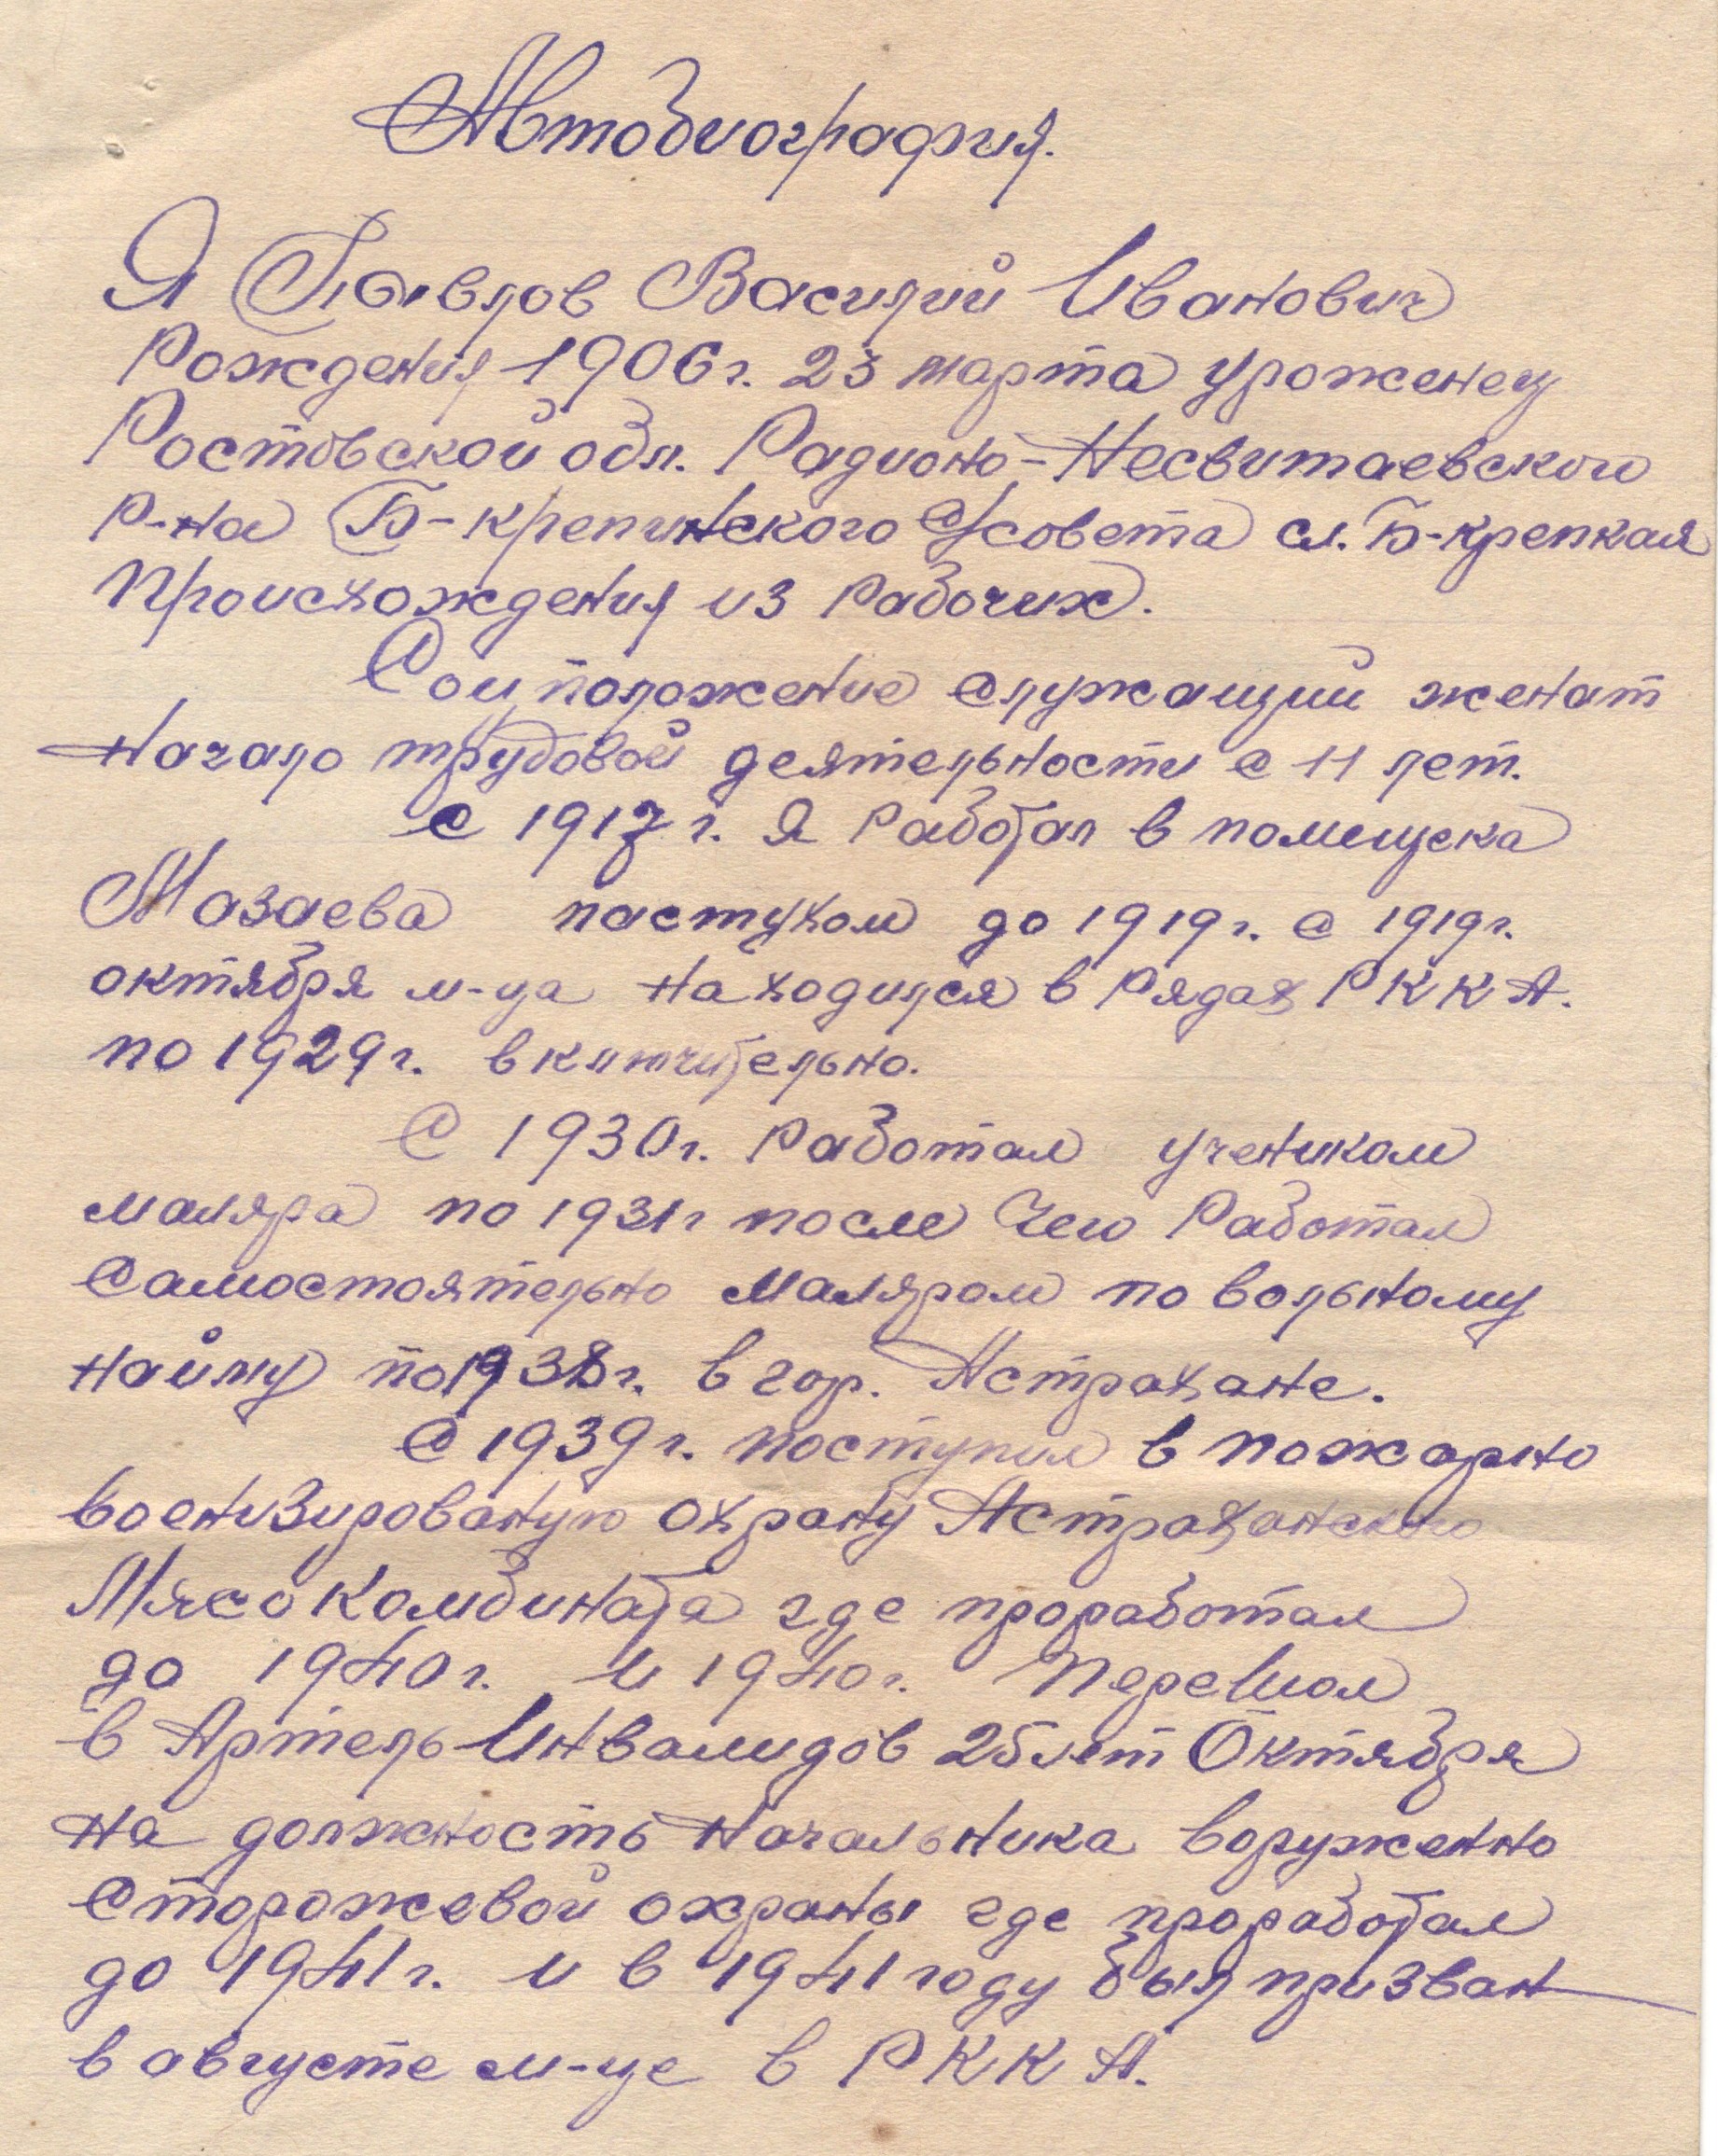 Автобиография.
Я Павлов Василий Иванович
Рождения 1906г. 23 марта уроженец
Ростовской обл. Радионо-Несвитаевского
Р-на Б-крепинского С/совета сл. Б-крепкая
Происхождения из Рабочих.
Соц положение служащий женат
Начало трудовой деятельности с 11 лет.
с 1917г. Я Работал в помещека
Мазаева пастухом до 1919г. с 1919г.
октября м-ца находился в Рядах РККА.
по 1929г. включительно.
С 1930г. Работал учеником
маляра по 1931г после чего Работал
Самостоятельно маляром по вольному
найму по 1938г. в гор. Астрахане.
С 1939г. поступил в пожарно
военизированую охрану Астраханского
Мясокомбината где проработал
до 1940г. и 1940г. перешол
в Артель Инвалидов 25 лет Октября
на должность Начальника воруженно
Сторожевой охраны где проработал
до 1941г. и в 1941 году был призван
в августе м-це в РККА.